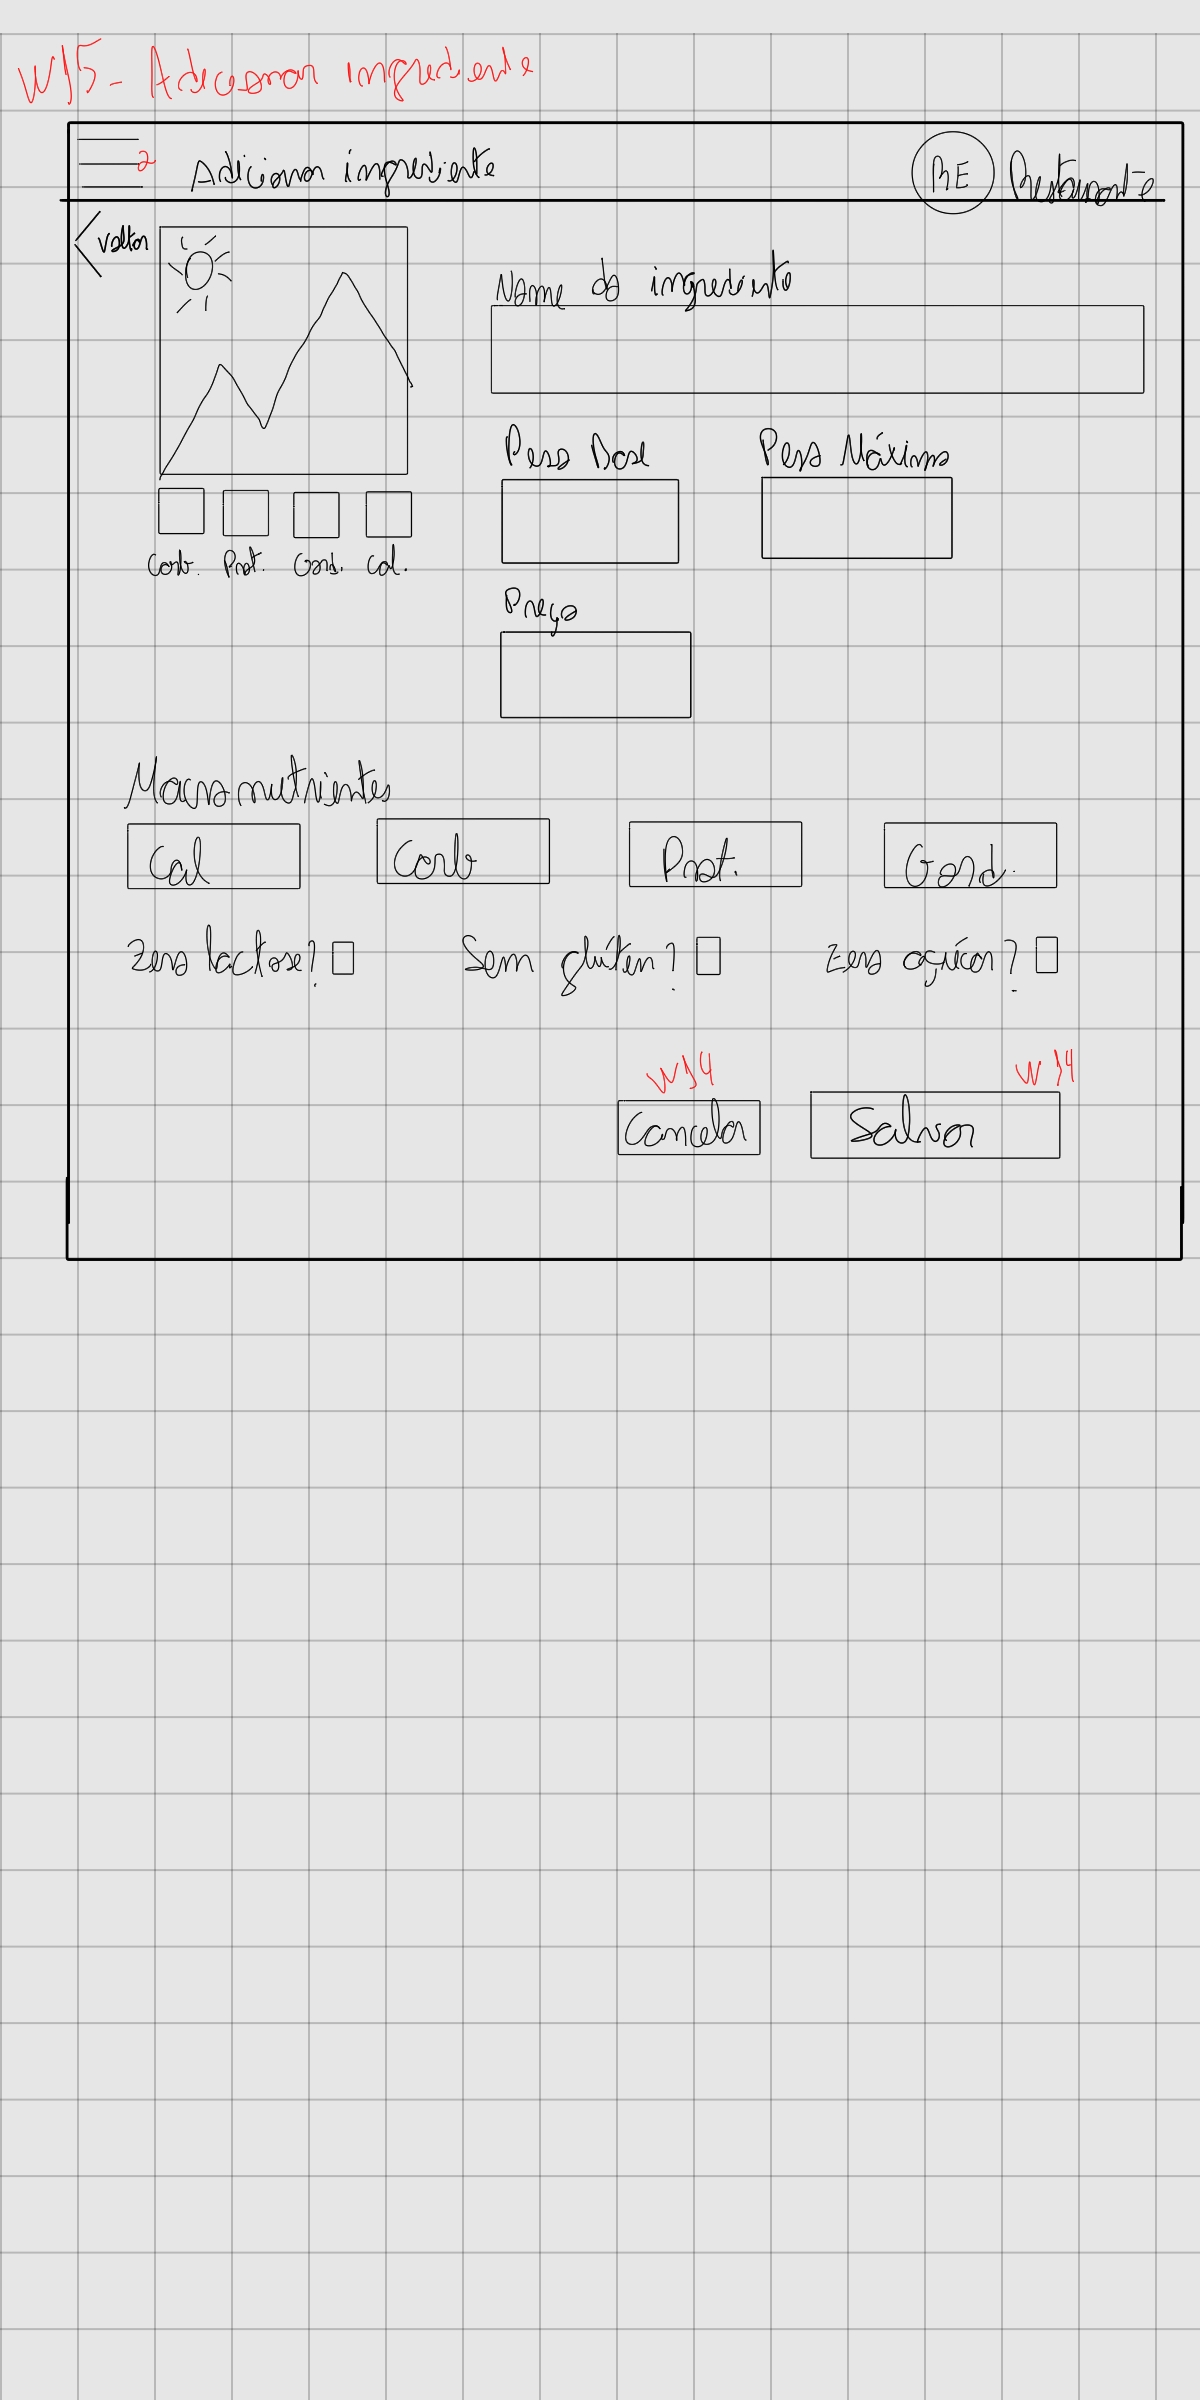 W15 - Adicionar ingrediente
2
Adicionar ingrediente
RE
Restaurante
voltar
Nome do ingrediente
Peso Base
Peso Máximo
Carb. Prot. Gord. Cal.
Preço
Macronutrientes
Cal
Carb
Prot.
Gord.
Zero lactose?
Sem glúten?
Zero açúcar?
W14
W14
Cancelar
Salvar